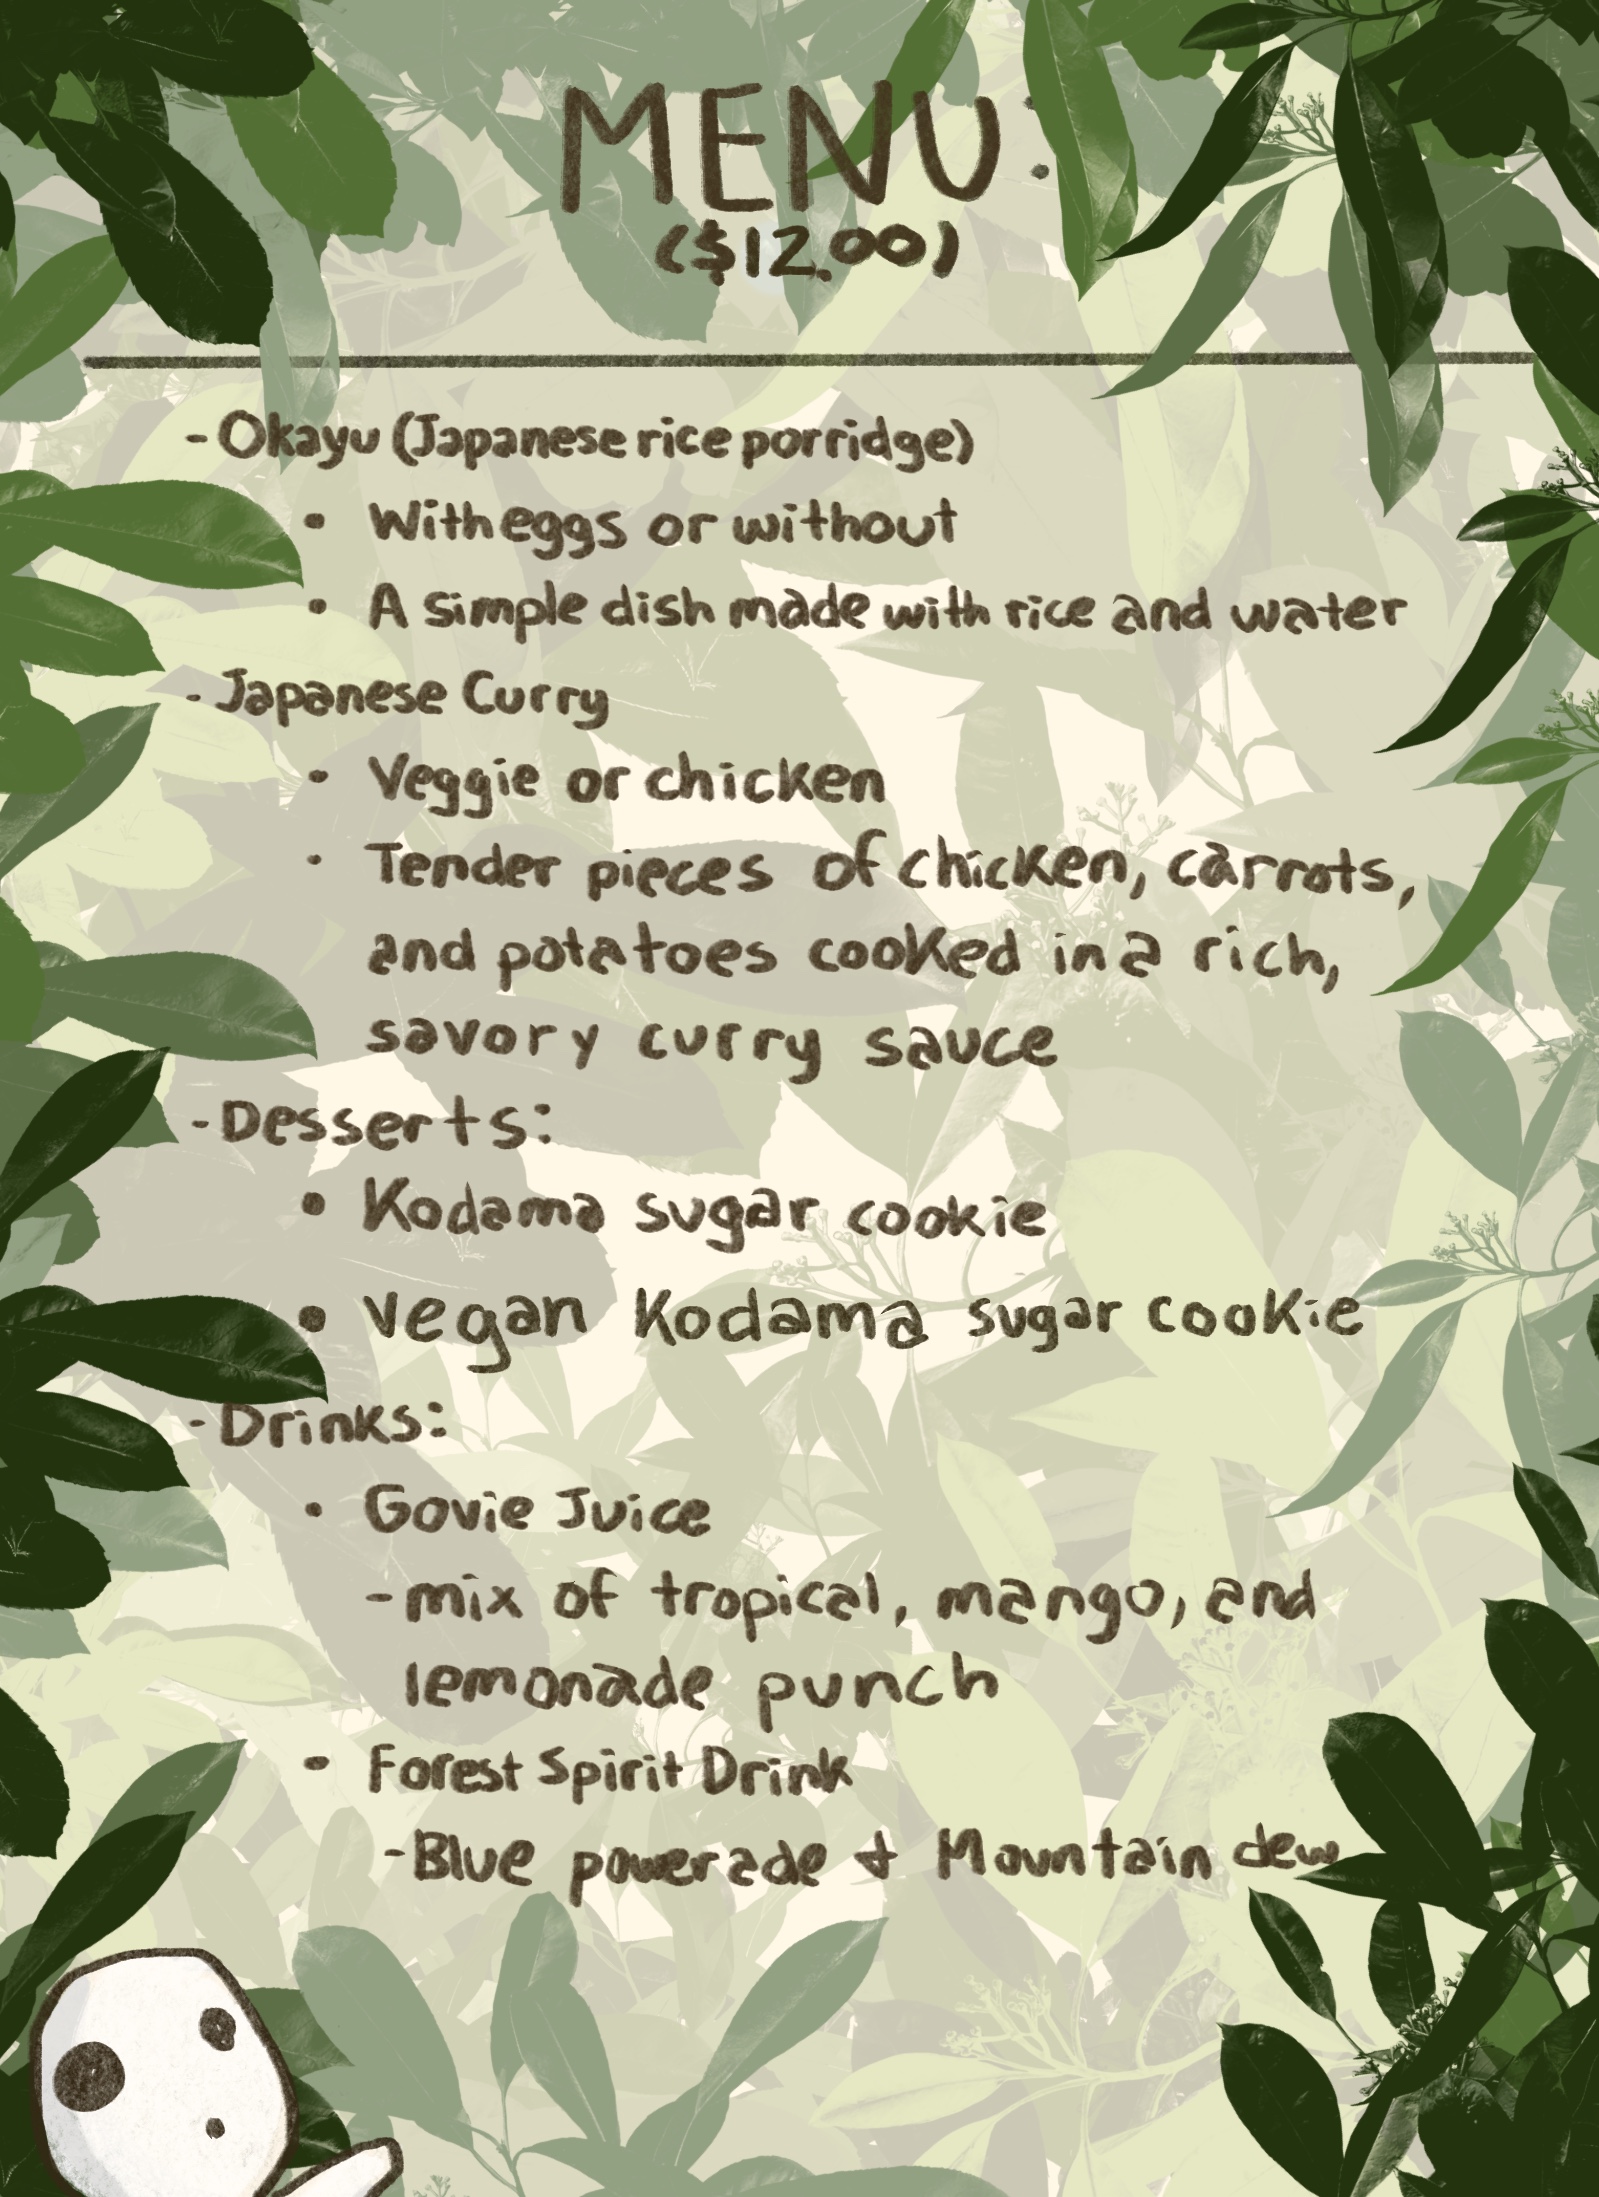 MENU:
($12.00)
- Okayu (Japanese rice porridge)
• With eggs or without
• A simple dish made with rice and water
- Japanese Curry
• Veggie or chicken
• Tender pieces of chicken, carrots,
and potatoes cooked in a rich,
savory curry sauce
- Desserts:
• Kodama sugar cookie
• Vegan Kodama sugar cookie
- Drinks:
• Govie Juice
- mix of tropical, mango, and
lemonade punch
• Forest Spirit Drink
- Blue powerade & Mountain dew